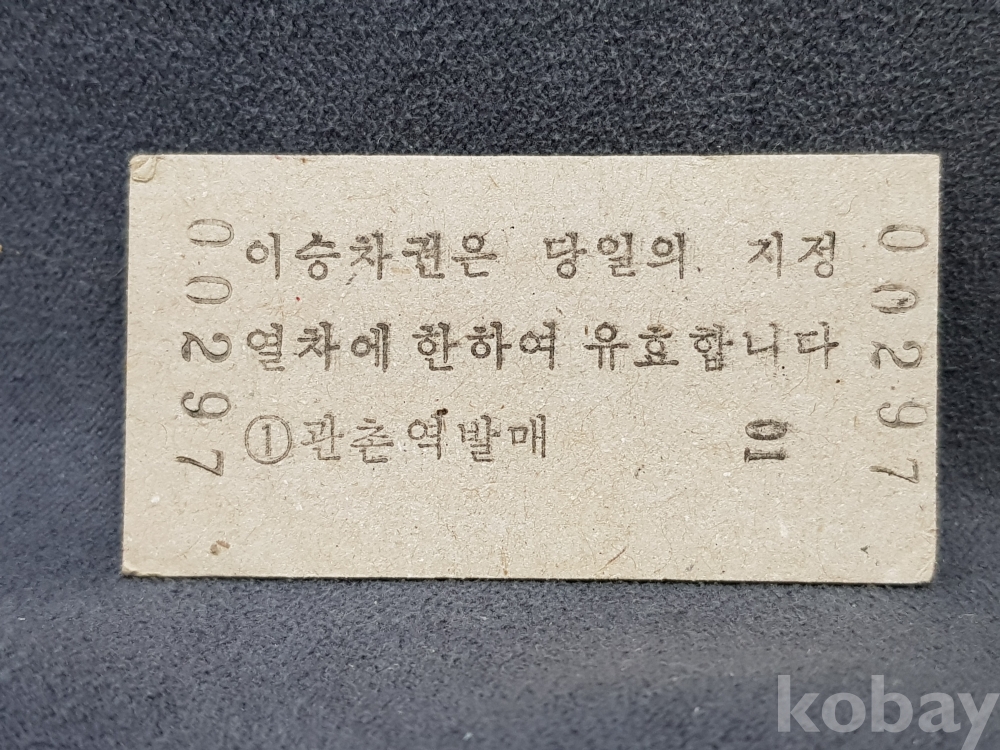 00297
이승차권은 당일의 지정
열차에 한하여 유효합니다
①관촌역발매 01
00297
kobay